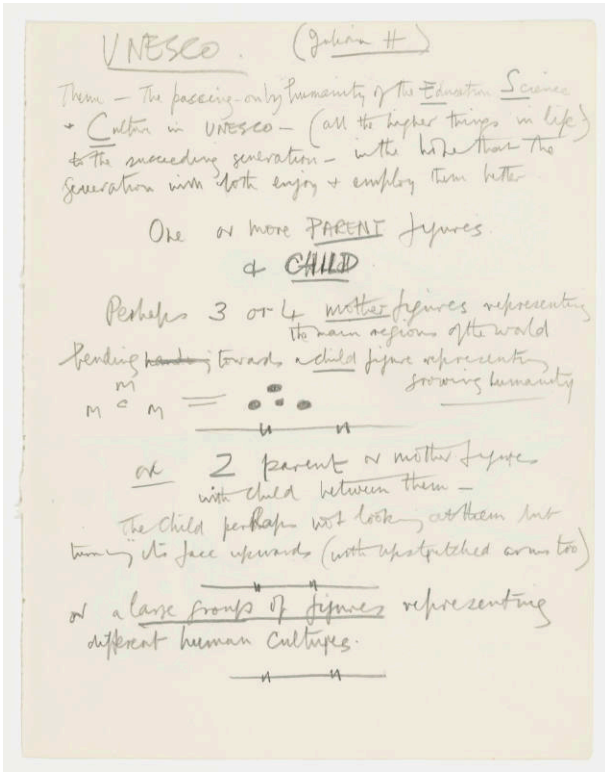 UNESCO. (Julian H)
Theme — The passing-on by humanity of the Education Science
+ Culture in UNESCO — (all the higher things in life)
to the succeeding generation — in the hope that the
generation will both enjoy + employ them better
One or more PARENT figures.
& CHILD
Perhaps 3 or 4 mother figures representing
the main regions of the world
bending towards a child figure representing
growing humanity
M
M C M =
or 2 parent or mother figures
with child between them —
The Child perhaps not looking at them but
turning its face upwards (with upstretched arms too)
or a large group of figures representing
different human cultures.